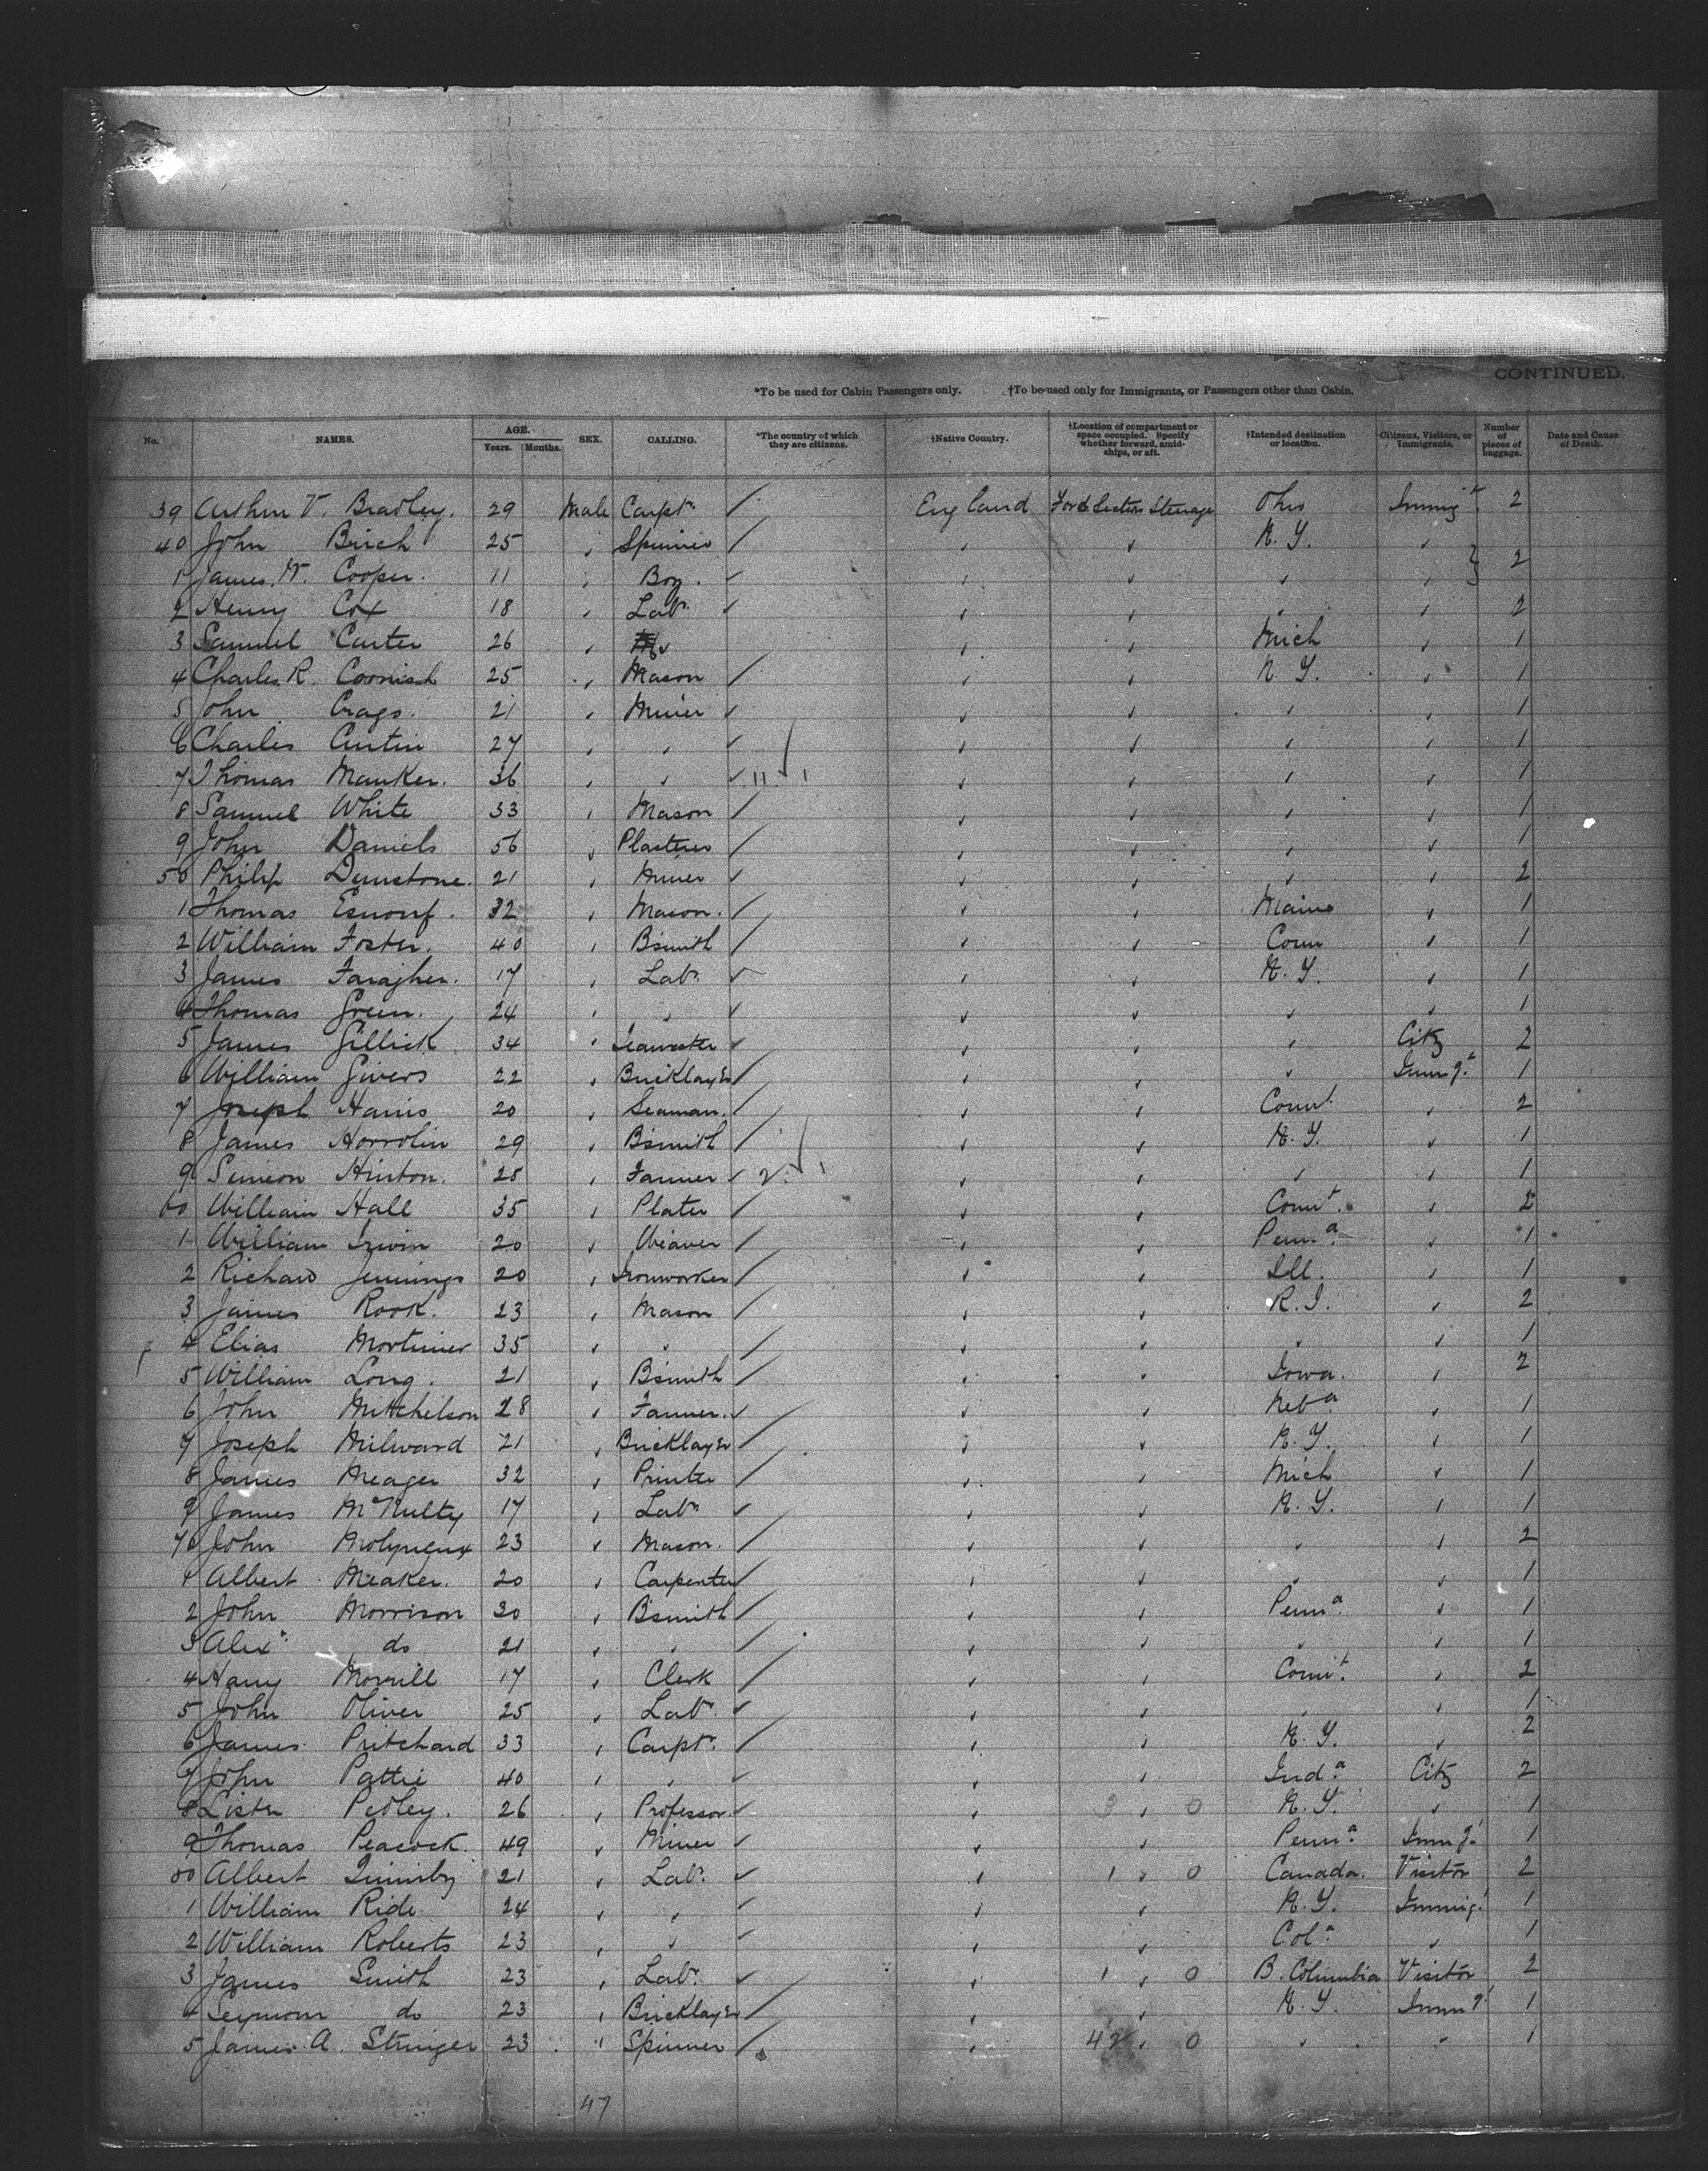 CONTINUED.
*To be used for Cabin Passengers only. †To be used only for Immigrants, or Passengers other than Cabin.
No. NAMES. AGE. Years. Months. SEX. CALLING. *The country of which they are citizens. †Native Country. †Location of compartment or space occupied. Specify whether forward, amidships, or aft. †Intended destination or location. Citizens, Visitors, or Immigrants. Number of pieces of baggage. Date and Cause of Death.
39 Arthur V. Bradley. 29 Male Carptr / England Ford Section Steerage Ohio Immigt 2
40 John Birch 25 " Spinner / " " N. Y. "
1 James W. Cooper. 11 " Boy. ✓ " " " " } 2
2 Henry Cox 18 " Labr ✓ " " " " 2
3 Samuel Carter 26 " " " " Mich " 1
4 Charles R. Cornish 25 " Mason / " " N Y. " 1
5 John Crago. 21 " Miner ✓ " " " " 1
6 Charles Curtin 27 " " ✓ " " " " 1
7 Thomas Manker. 36 " " ✓ 11 ✓ 1 " " " " 1
8 Samuel White 33 " Mason / " " " " 1
9 John Daniels 56 " Plasterer / " " " " 1
50 Philip Dunstone. 21 " Miner ✓ " " " " 2
1 Thomas Esnouf. 32 " Mason. / " " Maine " 1
2 William Foster. 40 " Bsmith / " " Conn " 1
3 James Faragher. 17 " Labr ✓ " " N. Y. " 1
4 Thomas Green. 24 " " ✓ " " " " 1
5 James Gillick 34 " ✓ " " " Citz 2
6 William Givers 22 " Bricklayer / " " " Immgt 1
7 Joseph Harris 20 " Seaman. / " " Connt. " 2
8 James Horrobin 29 " Bsmith / " " N. Y. " 1
9 Simeon Hinton. 25 " Farmer ✓ 2 ✓ 1 " " " " 1
60 William Hall 35 " Plater / " " Connt. " 2
1 William Irwin 20 " Weaver / " " Penna. " 1
2 Richard Jennings 20 " Ironworker / " " Ill. " 1
3 James Rook. 23 " Mason / " " R. I. " 2
4 Elias Mortimer 35 " " / " " " " 1
5 William Long. 21 " Bsmith / " " Iowa. " 2
6 John Mitchelson 28 " Farmer. ✓ " " Neba " 1
7 Joseph Milward 21 " Bricklayer / " " N. Y. " 1
8 James Meager 32 " Printer / " " Mich " 1
9 James McNulty 17 " Labr ✓ " " N. Y. " 1
70 John Molyneux 23 " Mason. / " " " " 2
1 Albert Meaker. 20 " Carpenter / " " " " 1
2 John Morrison 30 " Bsmith / " " Penna. " 1
3 Alexr do 21 " " / " " " " 1
4 Harry Morrill 17 " Clerk / " " Connt. " 2
5 John Oliver 25 " Labr ✓ " " " " 1
6 James Pritchard 33 " Carptr. / " " N. Y. " 2
7 John Pattie 40 " " ✓ " " Inda. Citz 2
8 Lister Pedley. 26 " Professor. ✓ " 2 " 0 N. Y. " 1
9 Thomas Peacock. 49 " Miner ✓ " " Penna. Immgt 1
80 Albert Quimby 21 " Labr. ✓ " 1 " 0 Canada. Visitor 2
1 William Ride 24 " " ✓ " " N. Y. Immigt 1
2 William Roberts 23 " " ✓ " " Cola. " 1
3 James Smith 23 " Labr. ✓ " 1 " 0 B. Columbia Visitor 2
4 Seymour do 23 " Bricklayer / " " N. Y. Immgt 1
5 James A. Stringer 23 " Spinner / " 42 " 0 " " 1
47